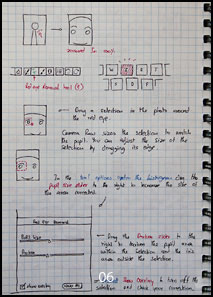 zoomed In 100%
W E R
S D F
Red eye Removal tool (E)
← Drag a selection in the photo around
the red eye.
Camera Raw sizes the selection to match
the pupil. You can adjust the size of the
selection by dragging its edge.
In the tool options under the histogram, drag the
pupil size slider to the right to increase the size of
the area corrected.
Red Eye Removal
Pupil Size
Darken
Show overlay
Clear All
← Drag the Darken slider to the
right to darken the pupil area
within the selection and the iris
area outside the selection.
Show Overlay to turn off the
selection and check your correction.
06